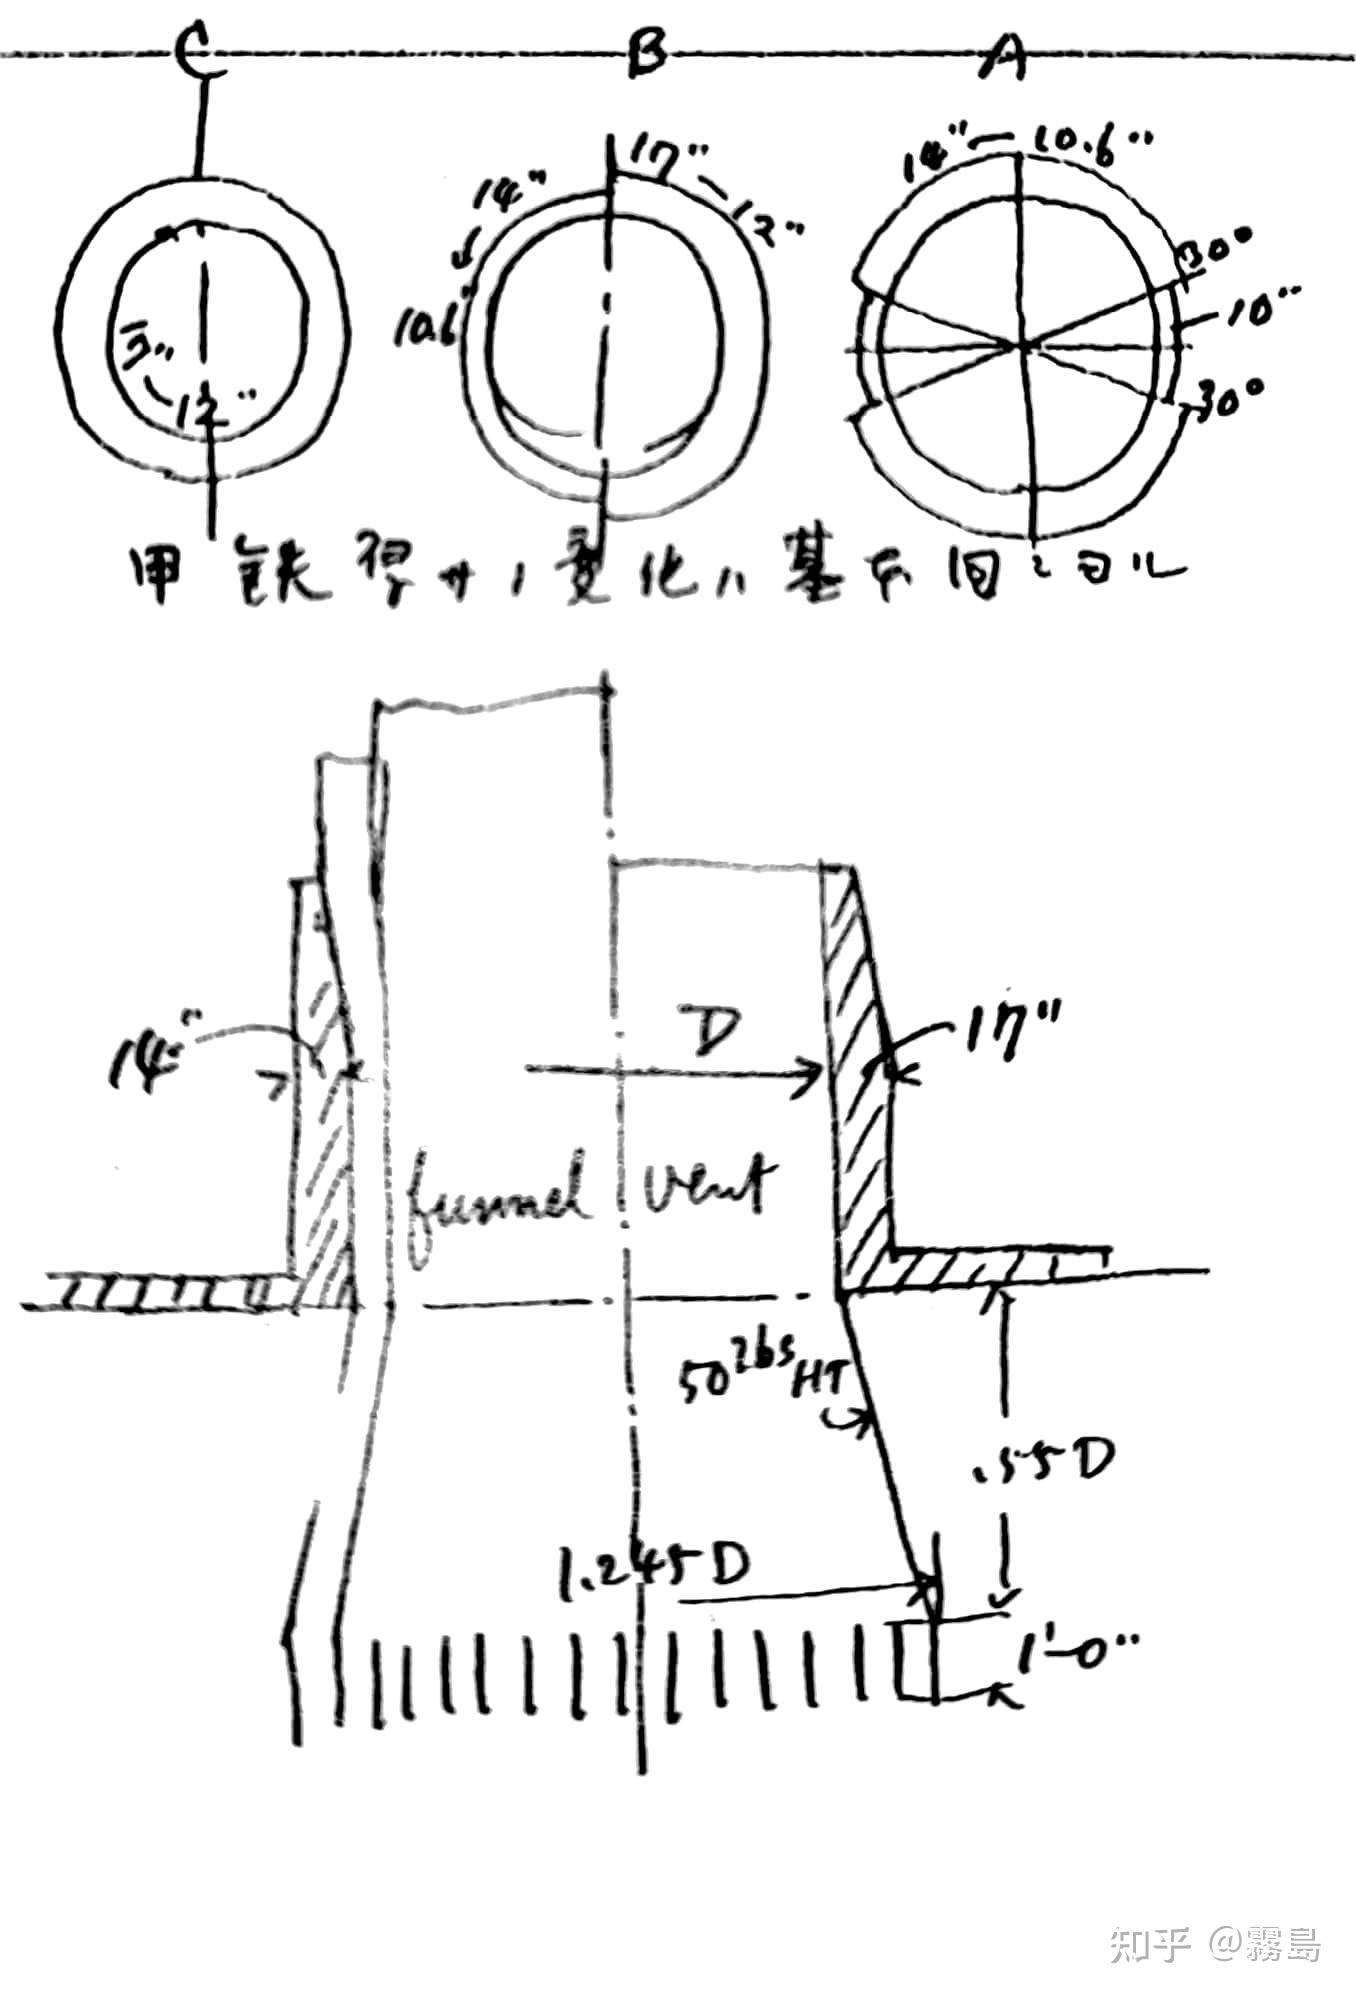 C B A
14" 17" 14" — 10.6"
12" 30°
10.6" 10"
12" 30°
甲鉄厚サノ変化ハ基本図ニヨル
14" D 17"
funnel vent
50 lbs HT
.55D
1.245D
1'-0"
知乎 @霧島